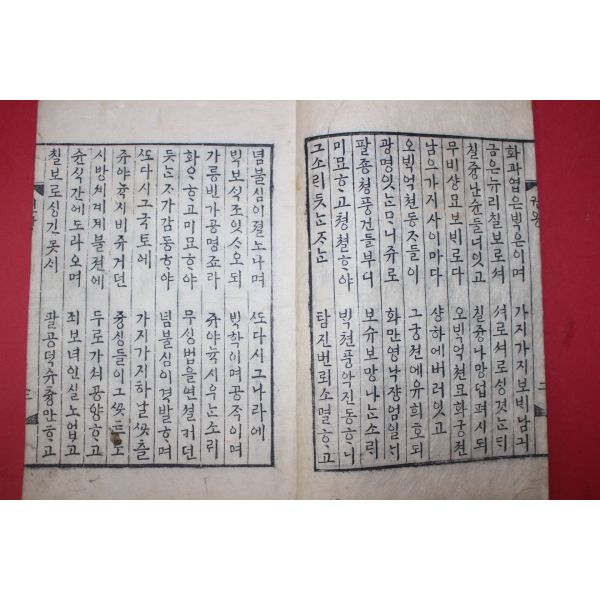 화과엽은빅은이며 가지가지보비남긔
금은뉴리칠보로셔 셔로셔로싱겻ᄂᆞᆫᄃᆡ
칠즁난슌들녀잇고 칠즁나망덥펴시되
무비샹묘보비로다 오빅억쳔묘화궁젼
남그가지사이마다 샹하에버러잇고
오빅억쳔동ᄌᆞ들이 그궁젼에유희ᄒᆞ고
광명잇ᄂᆞᆫ마니쥬로 화만영낙쟝엄일니
팔죵쳥풍건들부니 보슈보망나ᄂᆞᆫ소ᄅᆡ
미묘ᄒᆞ고쳥쳘ᄒᆞ야 빅쳔풍악진동ᄒᆞ니
그소ᄅᆡ듯ᄂᆞᆫᄌᆞᄂᆞᆫ 탐진번뢰소멸ᄒᆞ고
권왕
념불심이졀노나며 ᄯᅩ다시그나라에
빅보식죠잇ᄉᆞ오되 빅학이며공작이며
가릉빈가공명죠라 쥬야뉵시우ᄂᆞᆫ소ᄅᆡ
화음ᄒᆞ고미묘ᄒᆞ야 무샹법을연셜커던
듯ᄂᆞᆫᄌᆞ가감동ᄒᆞ야 념불심이격발ᄒᆞ며
ᄯᅩ다시그국토에 가지가지하ᄂᆞᆯᄭᅩᆺ츨
쥬야뉵시비쥬거던 즁싱들이그ᄭᅩᆺ흐로
시방셰계졔불젼에 두로가셔공양ᄒᆞ고
슌식간에도라오며 죄보녀인실노업고
칠보로싱긴못시 팔공덕슈츙만ᄒᆞ고